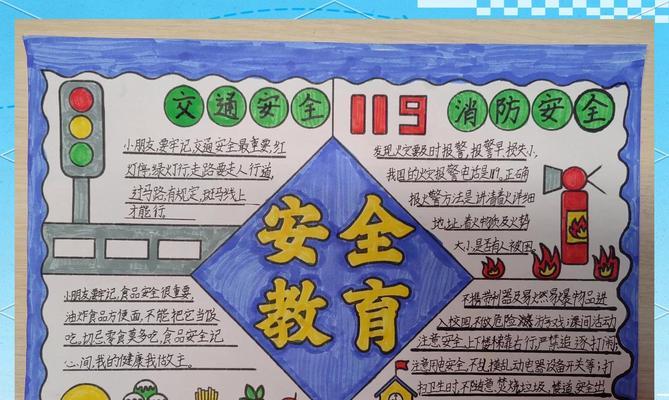 交通安全
小朋友,要牢记,交通安全最重要,红
灯停,绿灯行,走路要走人行道,
过马路,有规定,斑马线上
才能行
119 消防安全
发现火灾要及时报警,报警早,损失小,
我国的火灾报警电话是119,正确
报火警方法是:讲清着火详细
地址,着火物质及火势
大小,是否有人被困
安全
教育
小朋友要牢记,食品安全很重要,
油炸食品方便面,不能把它当饭
吃,切忌零食莫多吃,食品安全记
心间,我的健康我做主。
不携带利器及易燃易爆物品进
入校园,不做危险游戏;课间活动
注意安全,上下楼梯靠右行,严禁追逐打闹;
注意用电安全,不乱接乱动电器设备开关等;打
扫卫生时,不随意焚烧垃圾,楼道安全出